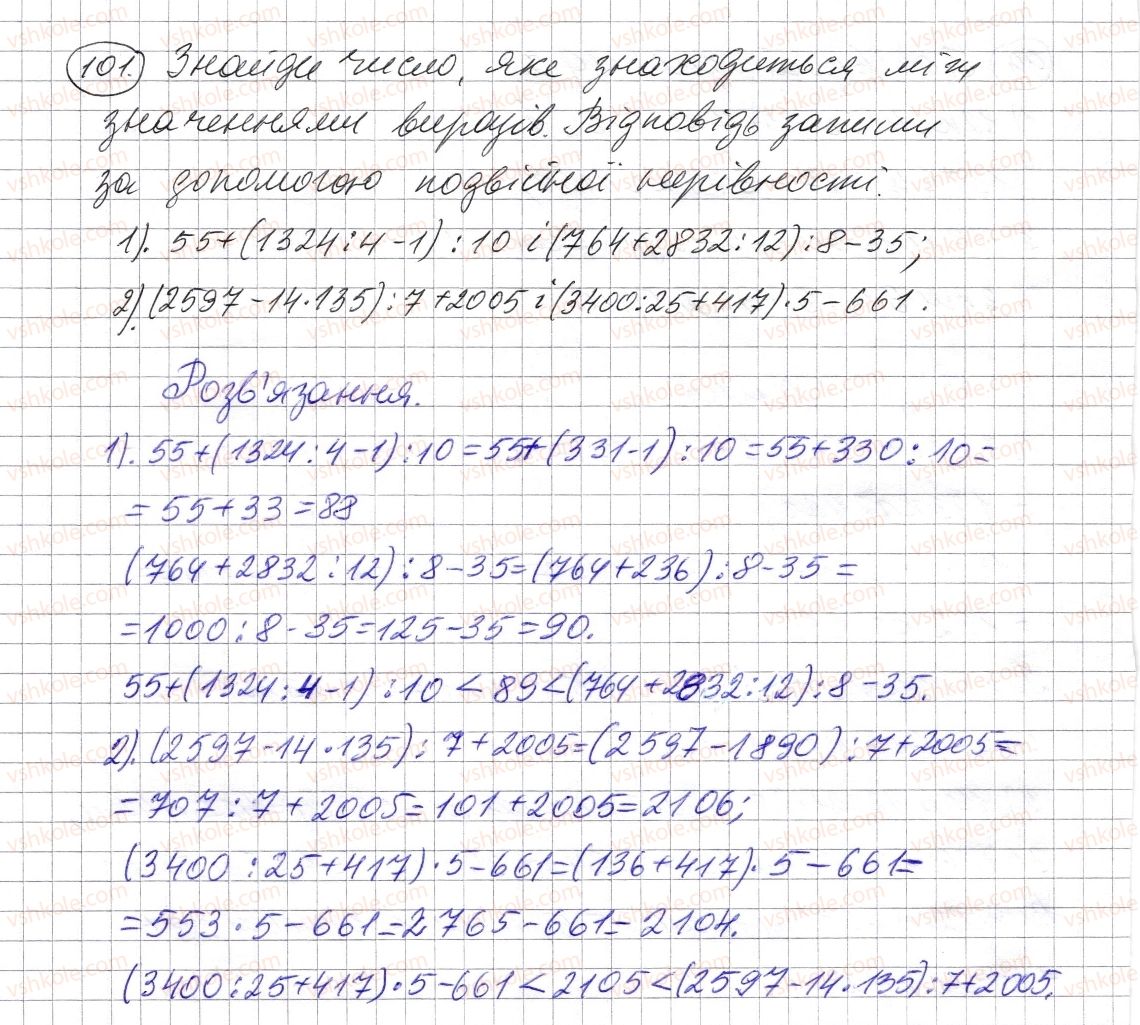 101. Знайди число, яке знаходиться між
значеннями виразів. Відповідь запиши
за допомогою подвійної нерівності.
1). 55+(1324:4-1):10 і (764+2832:12):8-35;
2). (2597-14·135):7+2005 і (3400:25+417)·5-661.
Розв'язання.
1). 55+(1324:4-1):10=55+(331-1):10=55+330:10=
=55+33=88
(764+2832:12):8-35=(764+236):8-35=
=1000:8-35=125-35=90.
55+(1324:4-1):10<89<(764+2832:12):8-35.
2). (2597-14·135):7+2005=(2597-1890):7+2005=
=707:7+2005=101+2005=2106;
(3400:25+417)·5-661=(136+417)·5-661=
=553·5-661=2765-661=2104.
(3400:25+417)·5-661<2105<(2597-14·135):7+2005.